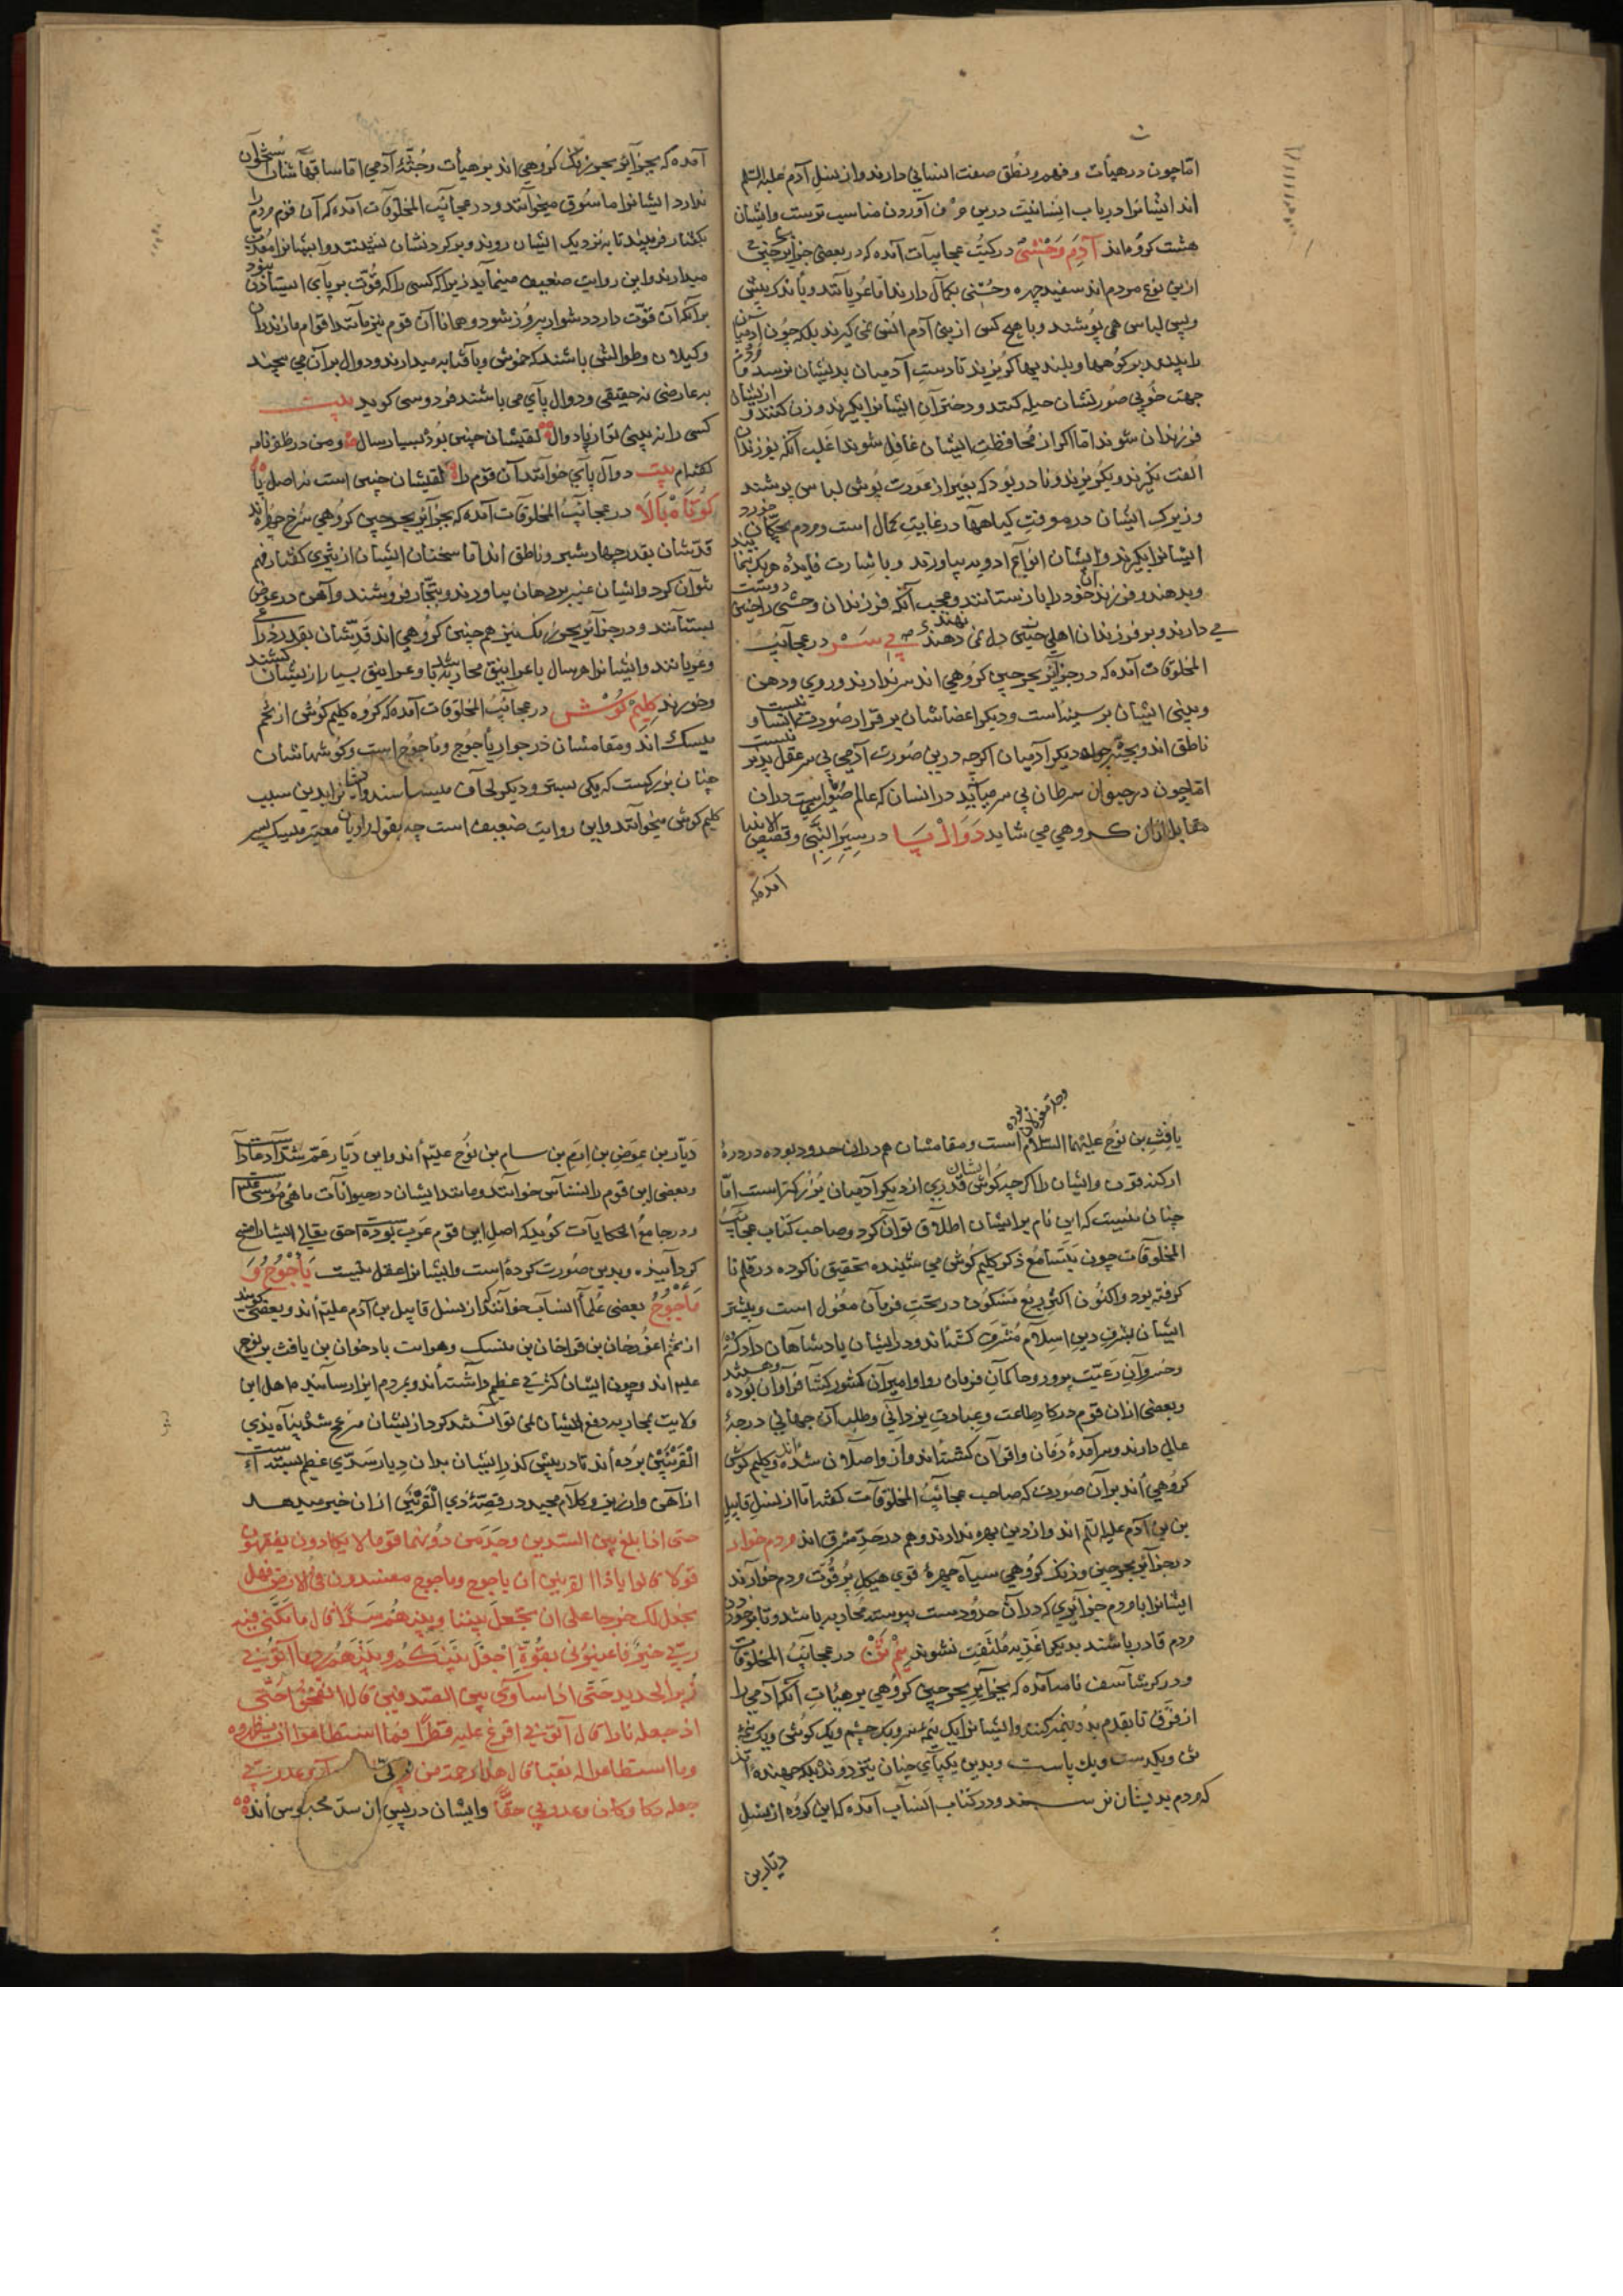 اما چون در هیأت و فهم و نطق صفت انسانی دارند و از نسل آدم علیه السلم
اند ایشانرا در باب انسانیت درین حرف آوردن مناسب ترست و ایشان
هشت گروه‌اند آدم وحشی در کتب عجایبات آمده که در بعضی جزایر چین
ازین نوع مردم‌اند سفید چهره و حسنی بکمال دارند اما عریانند و باندک پیش
و پس لباسی می پوشند و با هیچ کس از بنی آدم انس نمی گیرند بلکه چون آدمیان
را بینند بر کوهها و بلندیها گریزند تا دست آدمیان بدیشان نرسد مردم
جهت خوبی صورتشان حیله کنند و دختران ایشانرا بگیرند و زن کنند و ازیشان
فرزندان شوند اما اگر از محافظت ایشان غافل شوند اغلب آنکه بفرزندان
الفت نگیرند و بگریزند و نادر بود که بغیر از عورت پوش لباسی پوشند
و زیرکی ایشان در معرفت گیاهها در غایت کمال است و مردم بچگان خورد
ایشانرا بگیرند و ایشان انواع ادویه بیاورند و باشارت فایده هریک بنمایند
و بدهند و فرزند خود را باز ستانند و عجب آنکه فرزندان وحشی را دوست
می دارند و بر فرزندان اهلی دل نمی نهند بی سر در عجایب
المخلوقات آمده که در جزایر بحر چین گروهی اند سر ندارند و روی و دهن
و بینی ایشان بر سینه است و دیگر اعضاشان بر قرار صورت
ناطق اند و بجثه چون دیگر آدمیان اگرچه درین صورت آدمی بی سر عقل پذیر نیست
اما چون در حیوان سرطان بی سر می آید در انسان که عالم
مقابل آن گروهی می شاید دوال پا در سیر النبی و قصص الانبیا
آمده که
آمده که بجزایر بحر زنگ گروهی اند بر هیأت و جثه آدمی اما ساقهاشان استخوان
ندارد ایشانرا ماسوق میخوانند و در عجایب المخلوقات آمده که آن قوم مردم را
بگفتار فریبند تا بنزدیک ایشان روند و بر گردنشان نشینند و ایشانرا
میدارند و این روایت ضعیف مینماید زیرا که کسی را که قوت بر پای ایستادن نبود
بر آنکه آن قوت دارد دشوار پیروز شود و همانا آن قوم نیز مانند اقوام مازندران
و گیلان و طوالش باشند که
به عارضی نه حقیقی و دوال پای می باشند فردوسی گوید بیت
کسی را نه بینی تو از پا دوال لقبشان چنین بود بسیار سال و من در ظفرنامه
گفته‌ام بیت دوال پای خوانند آن قوم را لقبشان چنین است نز اصل پا
کوتاه بالا در عجایب المخلوقات آمده که بجزایر بحر چین گروهی سرخ چهره اند
قدشان بقدر چهار شبر و ناطق اند اما سخنان ایشان از تیزی گفتار فهم
نتوان کرد و ایشان عنبر بر دهان بیاورند و بتجار فروشند و آهن در عوض
بستانند و در جزایر بحر زنگ نیز هم چنین گروهی اند قدشان بقدر ذراعی
و عریانند و ایشانرا هر سال با غرانیق محاربه باشد و غرانیق بسیار ازیشان کشند
و خورند گلیم گوش در عجایب المخلوقات آمده که گروه گلیم گوش از تخم
میسک اند و مقامشان در جوار یأجوج و مأجوج است و گوشهاشان
چنان بزرگست که یکی بستر و دیگر لحاف میسازند و ایشانرا بدین سبب
گلیم گوش میخوانند و این روایت ضعیف است چه بقول راویان معتبر میسک پسر
یافث بن نوح علیهما السلام است و مقامشان هم دران حدود بوده در دره
ارکنه قون و ایشان را اگرچه گوش قدری از دیگر آدمیان بزرگتر است اما
چنان نیست که این نام بر ایشان اطلاق توان کرد و صاحب کتاب عجایب
المخلوقات چون بتسامع ذکر گلیم گوش می شنیده تحقیق ناکرده در قلم
گرفته بود و اکنون اکثر ربع مسکون در تحت فرمان مغول است و بیشتر
ایشان بشرف دین اسلام مشرف گشته‌اند و در ایشان پادشاهان دادگستر
و خسروان رعیت پرور و حاکمان فرمان روا و امیران کشور گشا فراوان بوده
و بعضی ازان قوم در کار طاعت و عبادت یزدانی و طلب آن جهانی درجه
عالی دارند و سرآمده زمان و اقران گشته‌اند و از واصلان شده‌اند و گلیم گوش
گروهی اند بر آن صورت که صاحب عجایب المخلوقات گفته اما از نسل قابیل
بن آدم علیه السلم اند و از دین بهره ندارند و هم در حد مشرق اند مردم خوار
در جزایر بحر چین و زنگ گروهی سیاه چهره قوی هیکل پر قوت مردم خوارند
ایشانرا با مردم جزایری که در آن حدودست پیوسته محاربه باشد و تا بر خوردن
مردم قادر باشند بدیگر اغذیه ملتفت نشوند نیم تن در عجایب المخلوقات
و در گرشاسف نامه آمده که بجزایر بحر چین گروهی بر هیأت آنکه آدمی را
از فرق تا بقدم بدو نیم کنند و ایشانرا یک نیمه سر و یک چشم و یک گوش و یک نیمه
تن و یکدست و یک پاست و بدین یک پای چنان تیز دوند بلکه جهنده اند
که مردم بدیشان نرسند و در کتاب انساب آمده که این گروه از نسل
دیار بن
دیار بن عوض بن ارم بن سام بن نوح علیه اند و این دیار عم شداد عاد است
و بعضی این قوم را نسناس خوانند و مانند ایشان در حیوانات ماهی موسی علیه السلم
و در جامع الحکایات گوید که اصل این قوم عرب بوده است حق تعالی ایشان را مسخ
گردانیده و بدین صورت کرده است و ایشانرا عقل نیست یأجوج و
مأجوج بعضی علما انساب خوانند که از نسل قابیل بن آدم علیه اند و بعضی گویند
از تخم اغوزخان بن قراخان بن
علیه اند و چون ایشان کثرتی عظیم داشته‌اند و بمردم ایذا رسانیده اهل این
ولایت بمحاربه دفع ایشان نمی توانستند کرد ازیشان مزعج شده پناه بذی
القرنین برده‌اند تا در پیش گذر ایشان بدان دیار سدی عظیم بستند است
از آهن و ارزیز و کلام مجید در قصه ذی القرنین ازان خبر میدهد
حتی اذا بلغ بین السدین وجد من دونهما قوما لا یکادون یفقهون
قولا قالوا یا ذا القرنین ان یاجوج و ماجوج مفسدون فی الارض فهل
نجعل لک خرجا علی ان تجعل بیننا و بینهم سدا قال ما مکنی فیه
ربی خیر فاعینونی بقوة اجعل بینکم و بینهم ردما اتونی
زبر الحدید حتی اذا ساوی بین الصدفین قال انفخوا حتی
اذ جعله نارا قال آتونی افرغ علیه قطرا فما اسطاعوا ان یظهروه
و ما استطاعوا له نقبا قال هذا رحمة من ربی وعد ربی
جعله دکا و کان وعد ربی حقا و ایشان در پس آن سد محبوس اند